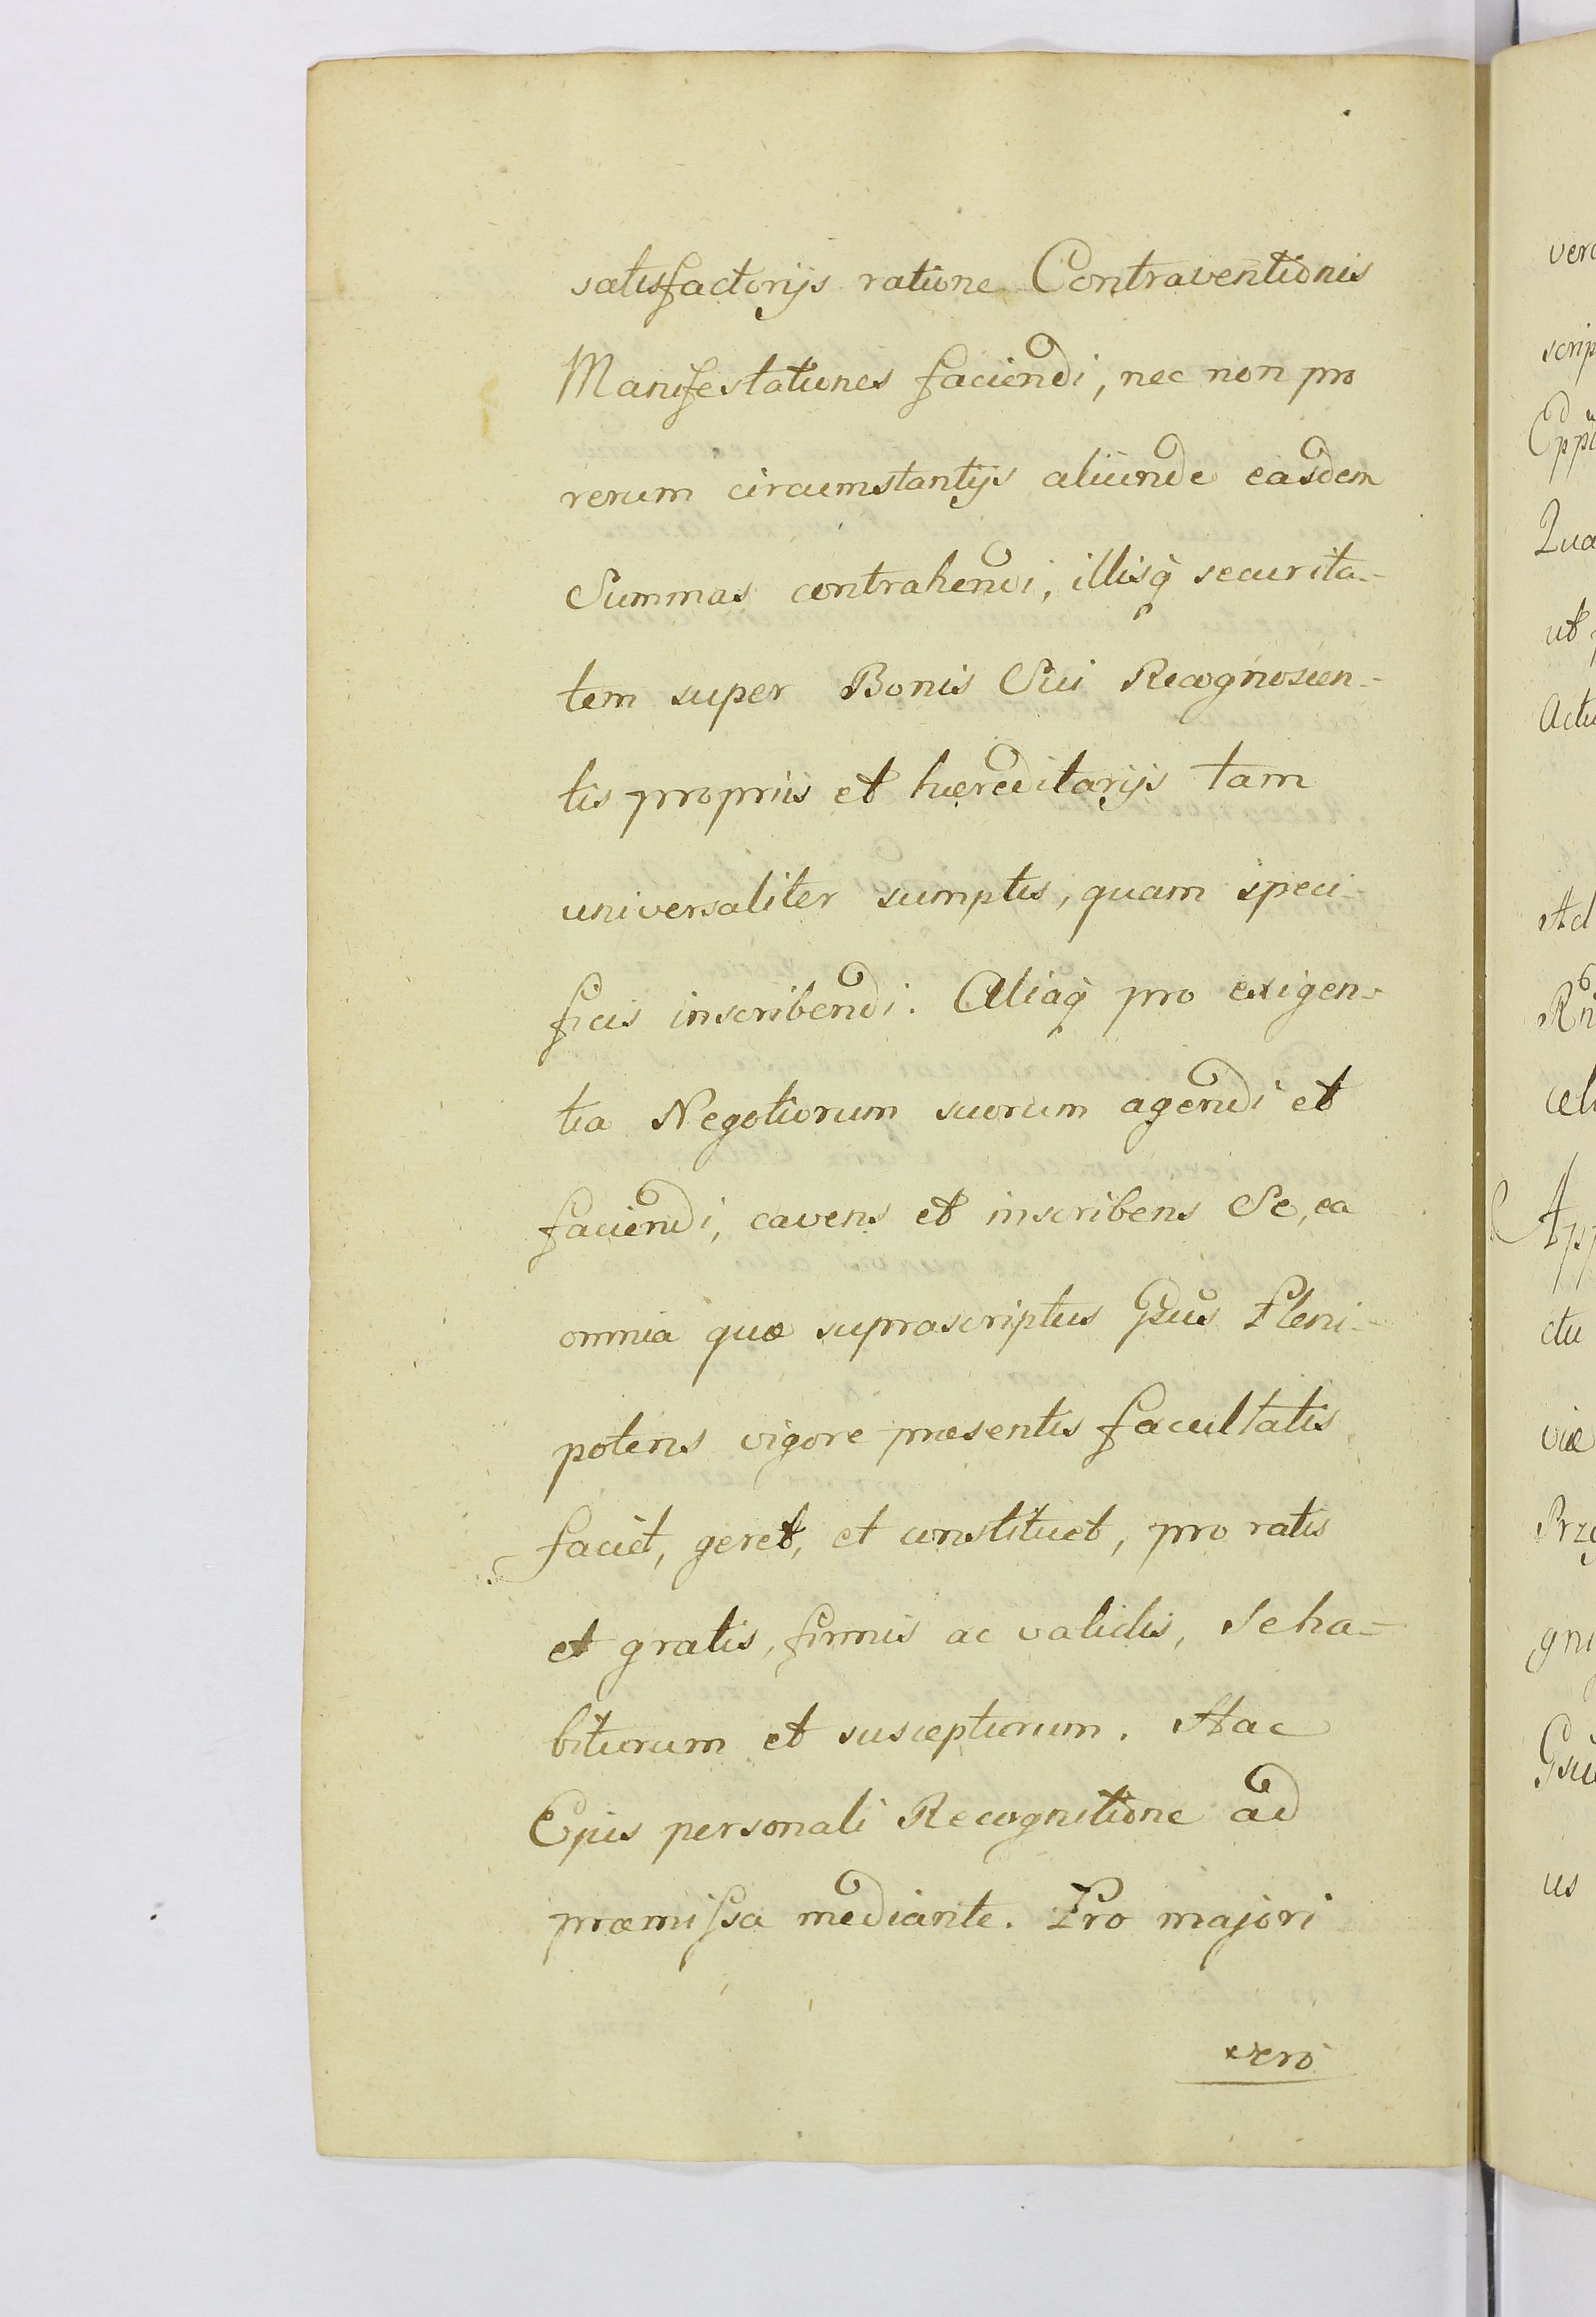 satisfactorijs ratione Contraventionis
Manifestationes faciendi, nec non pro
rerum circumstantijs aliunde easdem
Summas contrahendi, illisq̀ securita-
tem super Bonis Sui Recognoscen-
tis proprijs et hæreditarijs tam
universaliter sumptis, quam speci-
ficis inscribendi. Aliaq̀ pro exigen-
tia Negotiorum suorum agendi et
faciendi, cavens et inscribens Se, ea
omnia quæ suprascriptus Gsus Pleni-
potens vigore præsentis facultatis
faciet, geret, et constituet, pro ratis
et gratis, firmis ac validis, Se ha-
biturum et suscepturum. Hac
Ejus personali Recognitione ad
præmissa mediante. Pro majori
verò
vero
scrip
Qua
ut
Actu
Ad
cel
App
ctu
viæ
Prze
gni
us